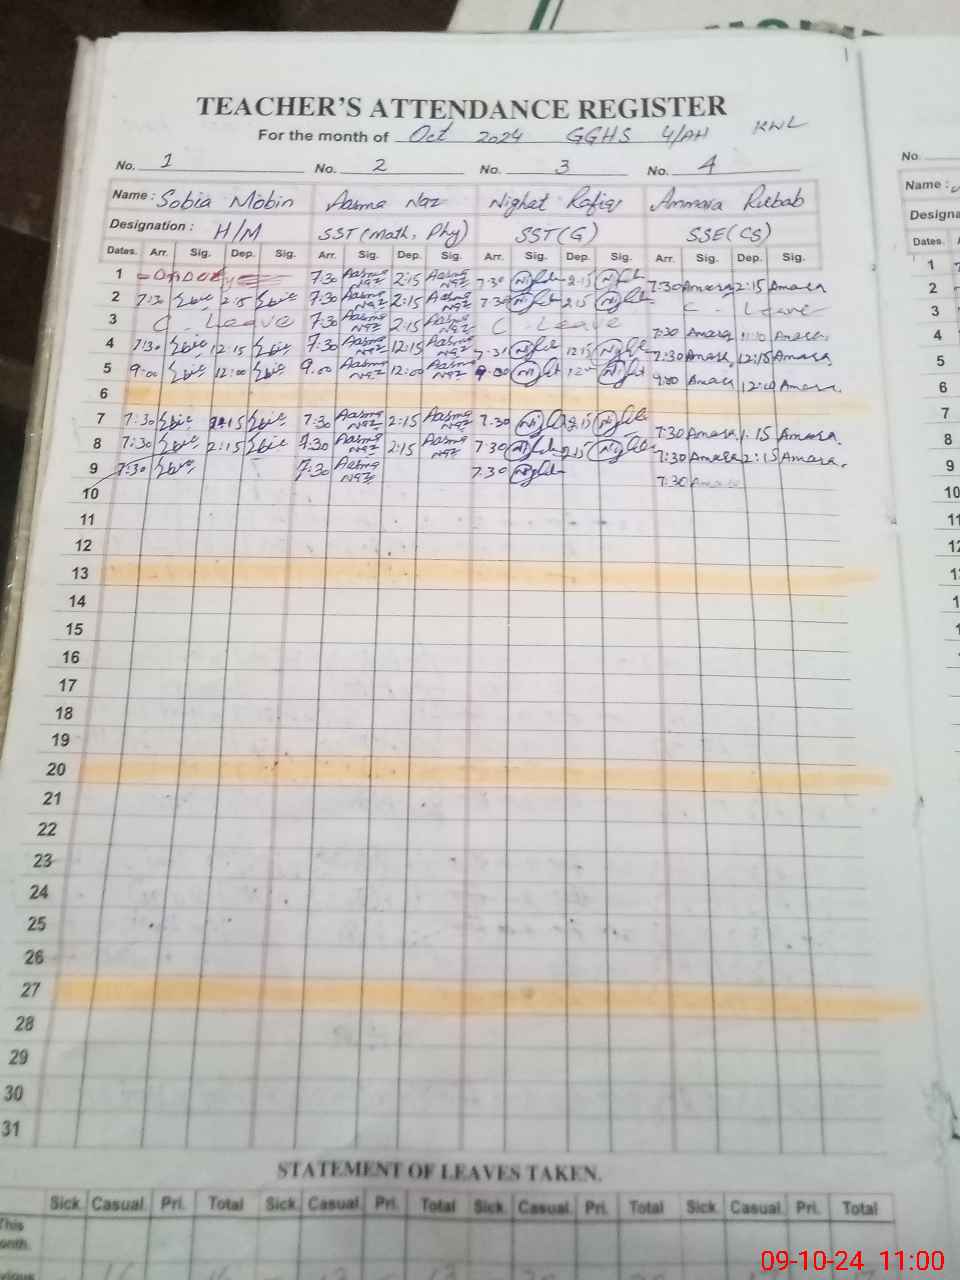 TEACHER'S ATTENDANCE REGISTER
For the month of Oct 2024 GGHS 4/AH KWL
No. 1 No. 2 No. 3 No. 4 No.
Name : Sobia Mobin Aasma Naz Nighat Rafiq Ammara Rubab Name :
Designation : H/M SST (Math, Phy) SST (G) SSE (CS) Designa
Dates. Arr. Sig. Dep. Sig. Arr. Sig. Dep. Sig. Arr. Sig. Dep. Sig. Arr. Sig. Dep. Sig. Dates.
1 On Duty 7:30 Aasma Naz 2:15 Aasma Naz 7:30 2:15 7:30 Amara 2:15 Amara 1
2 7:30 2:15 7:30 Aasma Naz 2:15 Aasma Naz 7:30 2:15 C. Leave 2
3 C. Leave 7:30 Aasma Naz 2:15 Aasma Naz C. Leave 7:30 Amara Amara 3
4 7:30 12:15 7:30 Aasma Naz 12:15 Aasma Naz 7:31 12:15 7:30 Amara 12:15 Amara 4
5 9:00 12:00 9:00 Aasma Naz 12:00 Aasma Naz 9:00 9:00 Amara 12:00 Amara 5
6 6
7 7:30 2:15 7:30 Aasma Naz 2:15 Aasma Naz 7:30 2:15 7:30 Amara 1:15 Amara 7
8 7:30 2:15 7:30 Aasma Naz 2:15 Aasma Naz 7:30 2:15 7:30 Amara 2:15 Amara 8
9 7:30 7:30 Aasma Naz 7:30 7:30 Amara 9
10 10
11 11
12 12
13 13
14 14
15 15
16
17
18
19
20
21
22
23
24
25
26
27
28
29
30
31
STATEMENT OF LEAVES TAKEN.
Sick. Casual. Pri. Total Sick. Casual. Pri. Total Sick. Casual. Pri. Total Sick. Casual. Pri. Total
This
onth.
vious
09-10-24 11:00